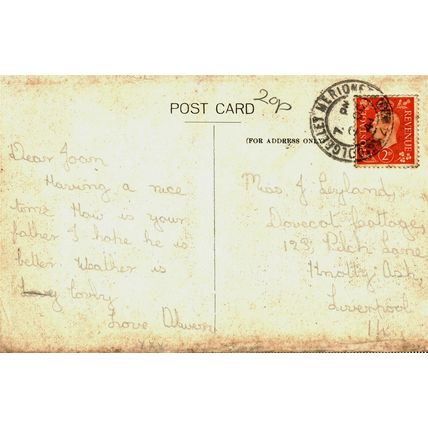 20p
POST CARD
(FOR ADDRESS ONLY
DOLGELLEY MERIONETH
POSTAGE REVENUE
2D
Dear Joan
Having a nice
time How is your
father I hope he is
better Weather is
lovely
Love
xxx
Miss J Leyland
Dovecot Cottages
Pilch Lane
Knotty Ash
Liverpool